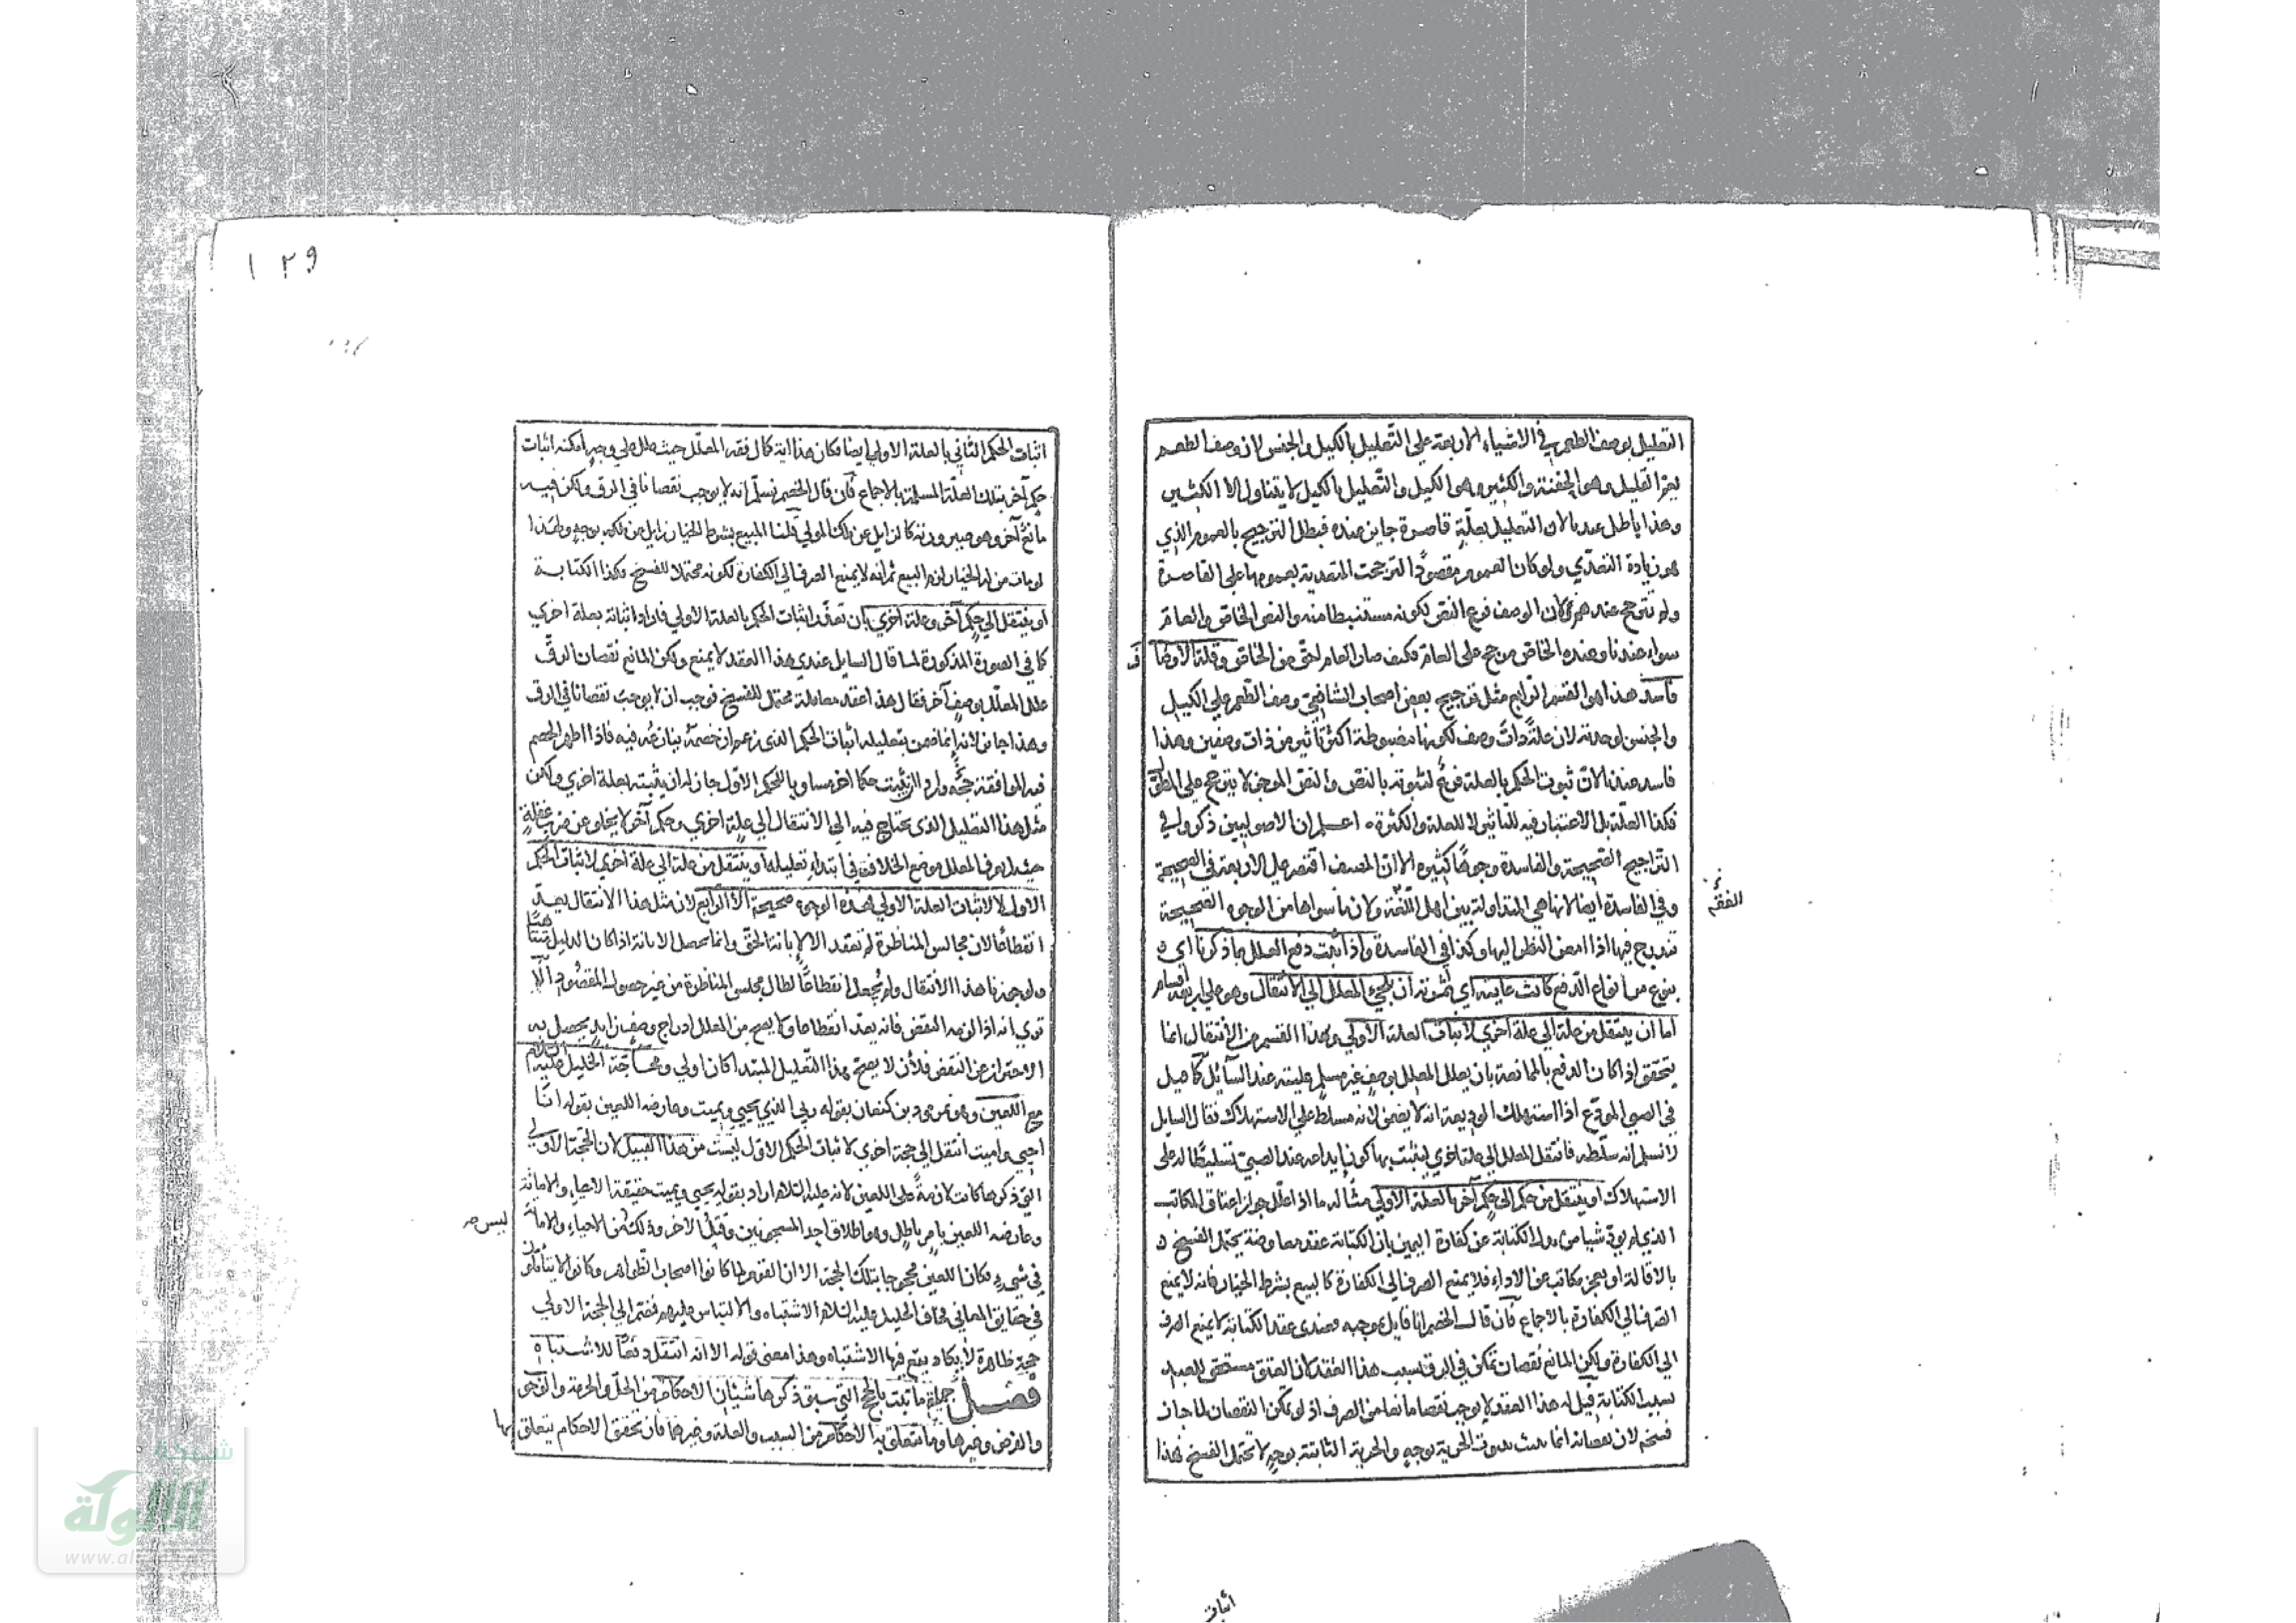 التعليل بوصف الطعم في الاشياء الاربعة علي التعليل بالكيل والجنس لان وصف الطعم
يعم القليل وهو الحفنة والكثير وهو الكيل والتعليل بالكيل لا يتناول الا الكثير
وهذا باطل عندنا لان التعليل بعلة قاصرة جايز عنده فبطل الترجيح بالعموم الذي
هو زيادة التعدي ولو كان العموم مقصودًا لترجحت المتعدية بعمومها علي القاصرة
ولم تترجح عندهم ولان الوصف فرع النص لكونه مستنبطا منه والنص الخاص والعام
سواء عندنا وعنده الخاص مرجح على العام فكيف صار العام احق من الخاص وقلة الاوصاف
فاسد هذا هو القسم الرابع مثل ترجيح بعض اصحاب الشافعي وصف الطعم علي الكيل
والجنس لوحدته لان علة ذات وصف لكونها مضبوطة اكثر تأثير من ذات وصفين وهذا
فاسد عندنا لان ثبوت الحكم بالعلة فرع لثبوته بالنص والنص الموجز لا يترجح علي المطول
فكذا العلة بل الاعتبار فيه للتأثير لا للقلة والكثرة اعلم ان الاصوليين ذكروا في
التراجيح الصحيحة والفاسدة وجوهًا كثيرة الا ان المصنف اقتصر علي الاربعة في الصحيحة
وفي الفاسدة ايضا لانها هي المتداولة بين اهل الفقه ولان ما سواها من الوجوه الصحيحة
الفقه
تندرج فيها اذا امعن النظر اليها وكذا في الفاسدة واذا ثبت دفع العلل بما ذكرنا اي
بنوع من انواع الدفع كانت غايته اي ثمرته ان يلجئ المعلل الي الانتقال وهو علي اربعة اقسام
اما ان ينتقل من علة الي علة اخري لاثبات العلة الاولي وهذا القسم من الانتقال انما
يتحقق اذا كان الدفع بالممانعة بان يعلل المعلل بوصف غير مسلم عليته عند السائل كما قيل
في الصبي المودع اذا استهلك الوديعة انه لا يضمن لانه مسلط علي الاستهلاك فقال السايل
لا نسلم انه سلطه فانتقل المعلل الي علة اخري ليثبت بها كون ايداعه عند الصبي تسليطا له علي
الاستهلاك او ينتقل من حكم الي حكم آخر بالعلة الاولي مثاله ما اذا علل جواز اعتاق المكاتب
الذي لم يؤد شيا من بدل الكتابة عن كفارة اليمين بان الكتابة عقد معاوضة يحتمل الفسخ
بالاقالة او بعجز مكاتب عن الاداء فلا يمنع الصرف الي الكفارة كالبيع بشرط الخيار فانه لا يمنع
الصرف الي الكفارة بالاجماع فان قال الخصم انا قايل بموجبه فعندي عقد الكتابة لا يمنع الصرف
الي الكفارة ولكن المانع نقصان تمكن في الرق بسبب هذا العقد كان العتق مستحق للعبد
بسبب الكتابة قيل له هذا العقد لا يوجب نقصا مانعا من الصرف اذ لو تمكن النقصان لما جاز
فسخه لان نقصانه انما يثبت بثبوت الحرية بوجه والحرية الثابتة بوجه لا تحتمل الفسخ فهذا
اثبات
١٢٩
اثبات الحكم الثاني بالعلة الاولي ايضا فكان هذا اية كمال فقه المعلل حيث علل علي وجه امكنه اثبات
حكم آخر بتلك العلة المسلمة بالاجماع فان قال الخصم نسلم انه لا يوجب نقصانا في الرق ولكن فيه
مانع آخر وهو صيرورته كالزايل عن ملك المولي قلنا المبيع بشرط الخيار زايل عن ملكه بوجه ولهذا
لو مات من له الخيار لزم البيع ثم انه لا يمنع الصرف الي الكفارة لكونه محتملا للفسخ فكذا الكتابة
او ينتقل الي حكم آخر وعلة اخري بان تعذر اثبات الحكم بالعلة الاولي فاراد اثباته بعلة اخري
كما في الصورة المذكورة لما قال السايل عندي هذا العقد لا يمنع ولكن المانع نقصان الرق
علل المعلل بوصف آخر فقال هذا عقد معاملة محتمل للفسخ فوجب ان لا يوجب نقصانا في الرق
وهذا جايز لانه انما ضمن بتعليله اثبات الحكم الذي زعم ان خصمه ينازعه فيه فاذا اظهر الخصم
فيه الموافقة حكما آخر مساويا للحكم الاول جاز له ان يثبته بعلة اخري ولكن
مثل هذا التعليل الذي يحتاج فيه الي الانتقال الي علة اخري وحكم آخر لا يخلو عن ضرب غفلة
حيث لم يعرف المعلل موضع الخلاف في ابتداء تعليله او ينتقل من علة الي علة اخري لاثبات الحكم
الاول لا لاثبات العلة الاولي هذه الوجوه صحيحة الا الرابع لان مثل هذا الانتقال يعد
انقطاعا لان مجالس المناظرة لم تعقد الا لابانة الحق وانما يحصل الابانة اذا كان الدليل متناهيا
ولو جوزنا هذا الانتقال ولم يجعل انقطاعًا لطال مجلس المناظرة من غير حصول المقصود الا
تري انه اذا لزمه النقض فانه يعد انقطاعا ولا يصح من المعلل ادراج وصف زايد يحصل به
الاحتراز عن النقض فلأن لا يصح هذا التعليل المبتدا كان اولي ومحاجة الخليل عليه السلام
مع اللعين وهو نمرود بن كنعان بقوله ربي الذي يحيي ويميت وعارضه اللعين بقوله انا
احيي واميت انتقل الي حجة اخري لاثبات الحكم الاول ليست من هذا القبيل لان الحجة الاولي
التي ذكرها كانت لازمة علي اللعين لانه عليه السلام اراد بقوله يحيي ويميت حقيقة الاحياء والاماتة
وعارضه اللعين بامر باطل وهو اطلاق احد المسجونين وقتل الآخر وذلك من الاحياء والاماتة
ليس
في شيء فكان اللعين محجوجا بتلك الحجة الا ان القوم لما كانوا اصحاب الظواهر وكانوا لا يتأملون
في حقايق المعاني خاف الخليل عليه السلام الاشتباه والالتباس عليهم فضم الي الحجة الاولي
حجة ظاهرة لا يكاد يقع فيها الاشتباه وهذا معنى قوله الا انه انتقل دفعًا للاشتباه
فصل جملة ما يثبت بالحجج التي سبق ذكرها شيئان الاحكام من الحل والحرمة والوجوب
والفرض وغيرها وما يتعلق به الاحكام من السبب والعلة وغيرها فان تحقق الاحكام يتعلق بها
شبكة
الألوكة